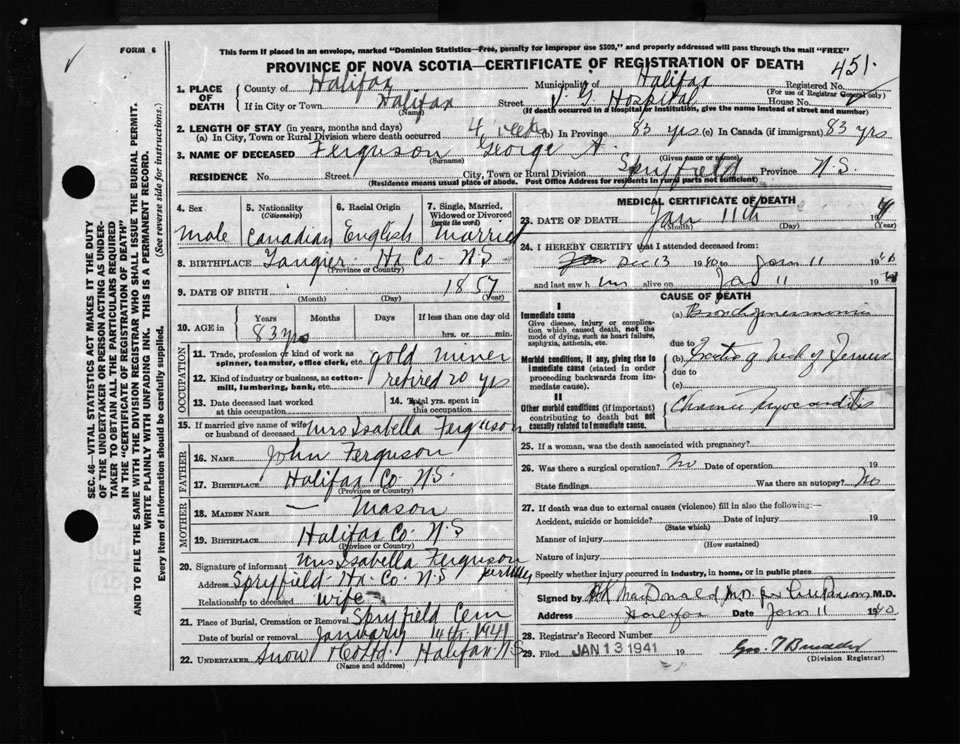 FORM 6
This form if placed in an envelope, marked "Dominion Statistics—Free, penalty for improper use $300," and properly addressed will pass through the mail "FREE"
PROVINCE OF NOVA SCOTIA—CERTIFICATE OF REGISTRATION OF DEATH
451.
1. PLACE OF DEATH
County of Halifax Municipality of Halifax Registered No.
(For use of Registrar General only)
If in City or Town Halifax Street V. G. Hospital House No.
(Name) (If death occurred in a hospital or institution, give the name instead of street and number)
2. LENGTH OF STAY (in years, months and days)
(a) In City, Town or Rural Division where death occurred 4 weeks (b) In Province 83 yrs. (c) In Canada (if immigrant) 83 yrs
3. NAME OF DECEASED Ferguson George A.
(Surname) (Given name or names)
RESIDENCE No. Street City, Town or Rural Division Spryfield Province N.S.
(Residence means usual place of abode. Post Office Address for residents in rural parts not sufficient)
4. Sex Male
5. Nationality (Citizenship) Canadian
6. Racial Origin English
7. Single, Married, Widowed or Divorced (write the word) Married
8. BIRTHPLACE Tangier Hx Co N.S
(Province or Country)
9. DATE OF BIRTH 1857
(Month) (Day) (Year)
10. AGE in Years Months Days If less than one day old
83 yrs hrs. or min.
OCCUPATION
11. Trade, profession or kind of work as spinner, teamster, office clerk, etc. gold miner
12. Kind of industry or business, as cotton-mill, lumbering, bank, etc. retired 20 yrs
13. Date deceased last worked at this occupation
14. Total yrs. spent in this occupation
15. If married give name of wife or husband of deceased Mrs Isabella Ferguson
FATHER
16. NAME John Ferguson
17. BIRTHPLACE Halifax Co N.S.
(Province or Country)
MOTHER
18. MAIDEN NAME — Mason
19. BIRTHPLACE Halifax Co. N.S
(Province or Country)
20. Signature of informant Mrs Isabella Ferguson
Address Spryfield Hx. Co. N.S
Relationship to deceased wife
21. Place of Burial, Cremation or Removal Spryfield Cem
Date of burial or removal January 14th 1941
22. UNDERTAKER Snow & Co Ltd. Halifax N.S
(Name and address)
MEDICAL CERTIFICATE OF DEATH
23. DATE OF DEATH Jan 11th 1941
(Month) (Day) (Year)
24. I HEREBY CERTIFY that I attended deceased from:
Dec 13 1940 to Jan 11 1940
and last saw him alive on Jan 11 19
CAUSE OF DEATH
I
Immediate cause
Give disease, injury or complication which caused death, not the mode of dying, such as heart failure, asphyxia, asthenia, etc.
(a) Bronchopneumonia
due to
Morbid conditions, if any, giving rise to immediate cause (stated in order proceeding backwards from immediate cause).
(b) Fractur of Neck of Femur
due to
(c)
II
Other morbid conditions (if important) contributing to death but not causally related to immediate cause.
Chronic Myocarditis
25. If a woman, was the death associated with pregnancy?
26. Was there a surgical operation? No Date of operation 19
State findings Was there an autopsy? No
27. If death was due to external causes (violence) fill in also the following:—
Accident, suicide or homicide? Date of injury 19
(State which)
Manner of injury
(How sustained)
Nature of injury
Specify whether injury occurred in industry, in home, or in public place
Signed by MacDonald M.D. M.D.
Address Halifax Date Jan 11 1940
28. Registrar's Record Number
29. Filed JAN 13 1941 19 Geo. T
(Division Registrar)
SEC. 46—VITAL STATISTICS ACT MAKES IT THE DUTY
OF THE UNDERTAKER OR PERSON ACTING AS UNDER-
TAKER TO OBTAIN ALL THE PARTICULARS REQUIRED
IN THE "CERTIFICATE OF REGISTRATION OF DEATH"
AND TO FILE THE SAME WITH THE DIVISION REGISTRAR WHO SHALL ISSUE THE BURIAL PERMIT.
WRITE PLAINLY WITH UNFADING INK. THIS IS A PERMANENT RECORD.
Every item of information should be carefully supplied. (See reverse side for instructions.)